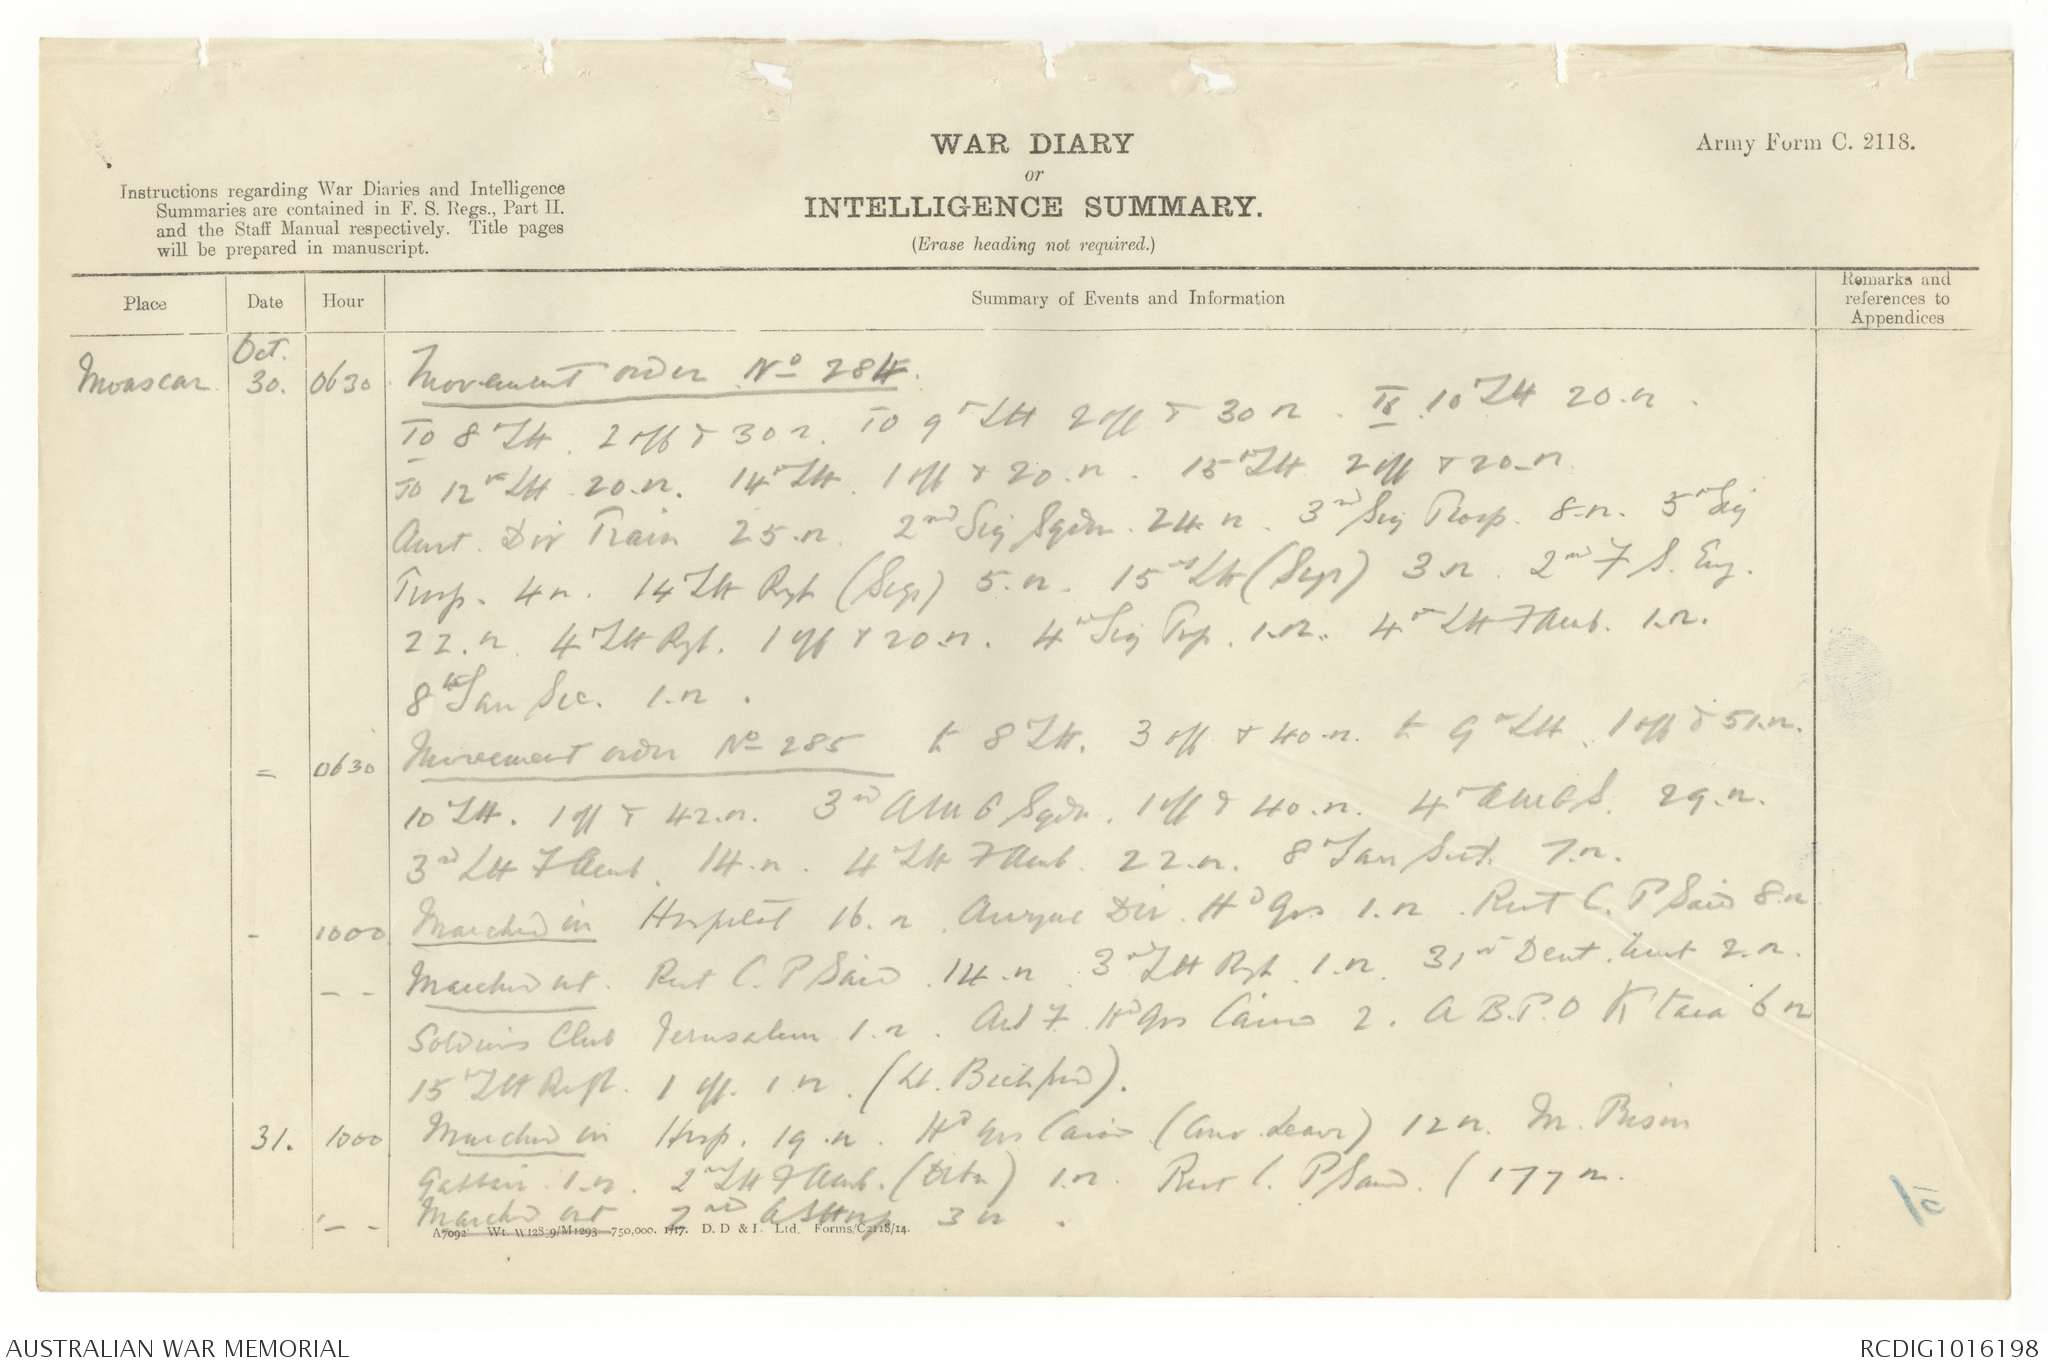 WAR DIARY
or
INTELLIGENCE SUMMARY.
(Erase heading not required.)
Army Form C. 2118.
Instructions regarding War Diaries and Intelligence
Summaries are contained in F. S. Regs., Part II.
and the Staff Manual respectively. Title pages
will be prepared in manuscript.
Place Date Hour Summary of Events and Information Remarks and references to Appendices
Moascar Oct. 30. 0630 Movement order No 284.
To 8th LH. 2 off & 30 r. To 9th LH 2 off & 30 r. To 10th LH 20.r.
To 12th LH 20.r. 14th LH. 1 off & 20.r. 15th LH 2 off & 20.r.
Aust. Div Train 25.r. 2nd Sig Sqdn. 24.r. 3rd Sig Troop. 8.r. 5th Sig
Troop. 4 r. 14th LH Rgt (Sigs) 5.r. 15th LH (Sigs) 3.r. 2nd F. S. Eng.
22.r. 4th LH Rgt. 1 off & 20.r. 4th Sig Trp. 1.r. 4th LH F Amb. 1.r.
8th San Sec. 1.r.
= 0630 Movement order No 285 to 8th LH. 3 off & 40.r. to 9th LH. 1 off & 51.r.
10th LH. 1 off & 42.r. 3rd AMG Sqdn. 1 off & 40.r. 4th AMGS. 29.r.
3rd LH F Amb. 14.r. 4th LH F Amb. 22.r. 8th San Sect. 7.r.
- 1000 Marched in Hospital 16.r. Anzac Div. Hd Qrs 1.r. Rest C. P Said 8.r
- - Marched out. Rest C. P Said 14.r 3rd LH Rgt 1.r. 31st Dent. Unit 2.r.
Soldiers Club Jerusalem 1.r. Hd Qrs Cairo 2. A B.P.O K'tara 6 r
15th LH Regt. 1 off. 1 r. (Lt. ).
31. 1000 Marched in Hosp. 19.r. Hd Qrs Cairo ( Leave) 12 r. M. Prison
Gabbari 1.r. 2nd LH F Amb. 1.r. Rest C. P Said. (177 r.
- - Marched out 2nd 3 r.
A7092 Wt. W128 9/M1293 750,000. 1/17. D. D & L Ltd. Forms/C2118/14.
AUSTRALIAN WAR MEMORIAL
RCDIG1016198